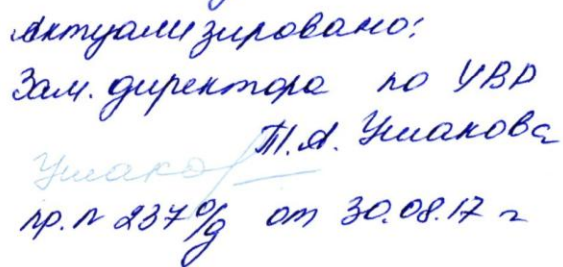 Актуализировано:
Зам. директора по УВР
Т.А. Ушакова
Ушако
пр. № 237 о/д от 30.08.17 г